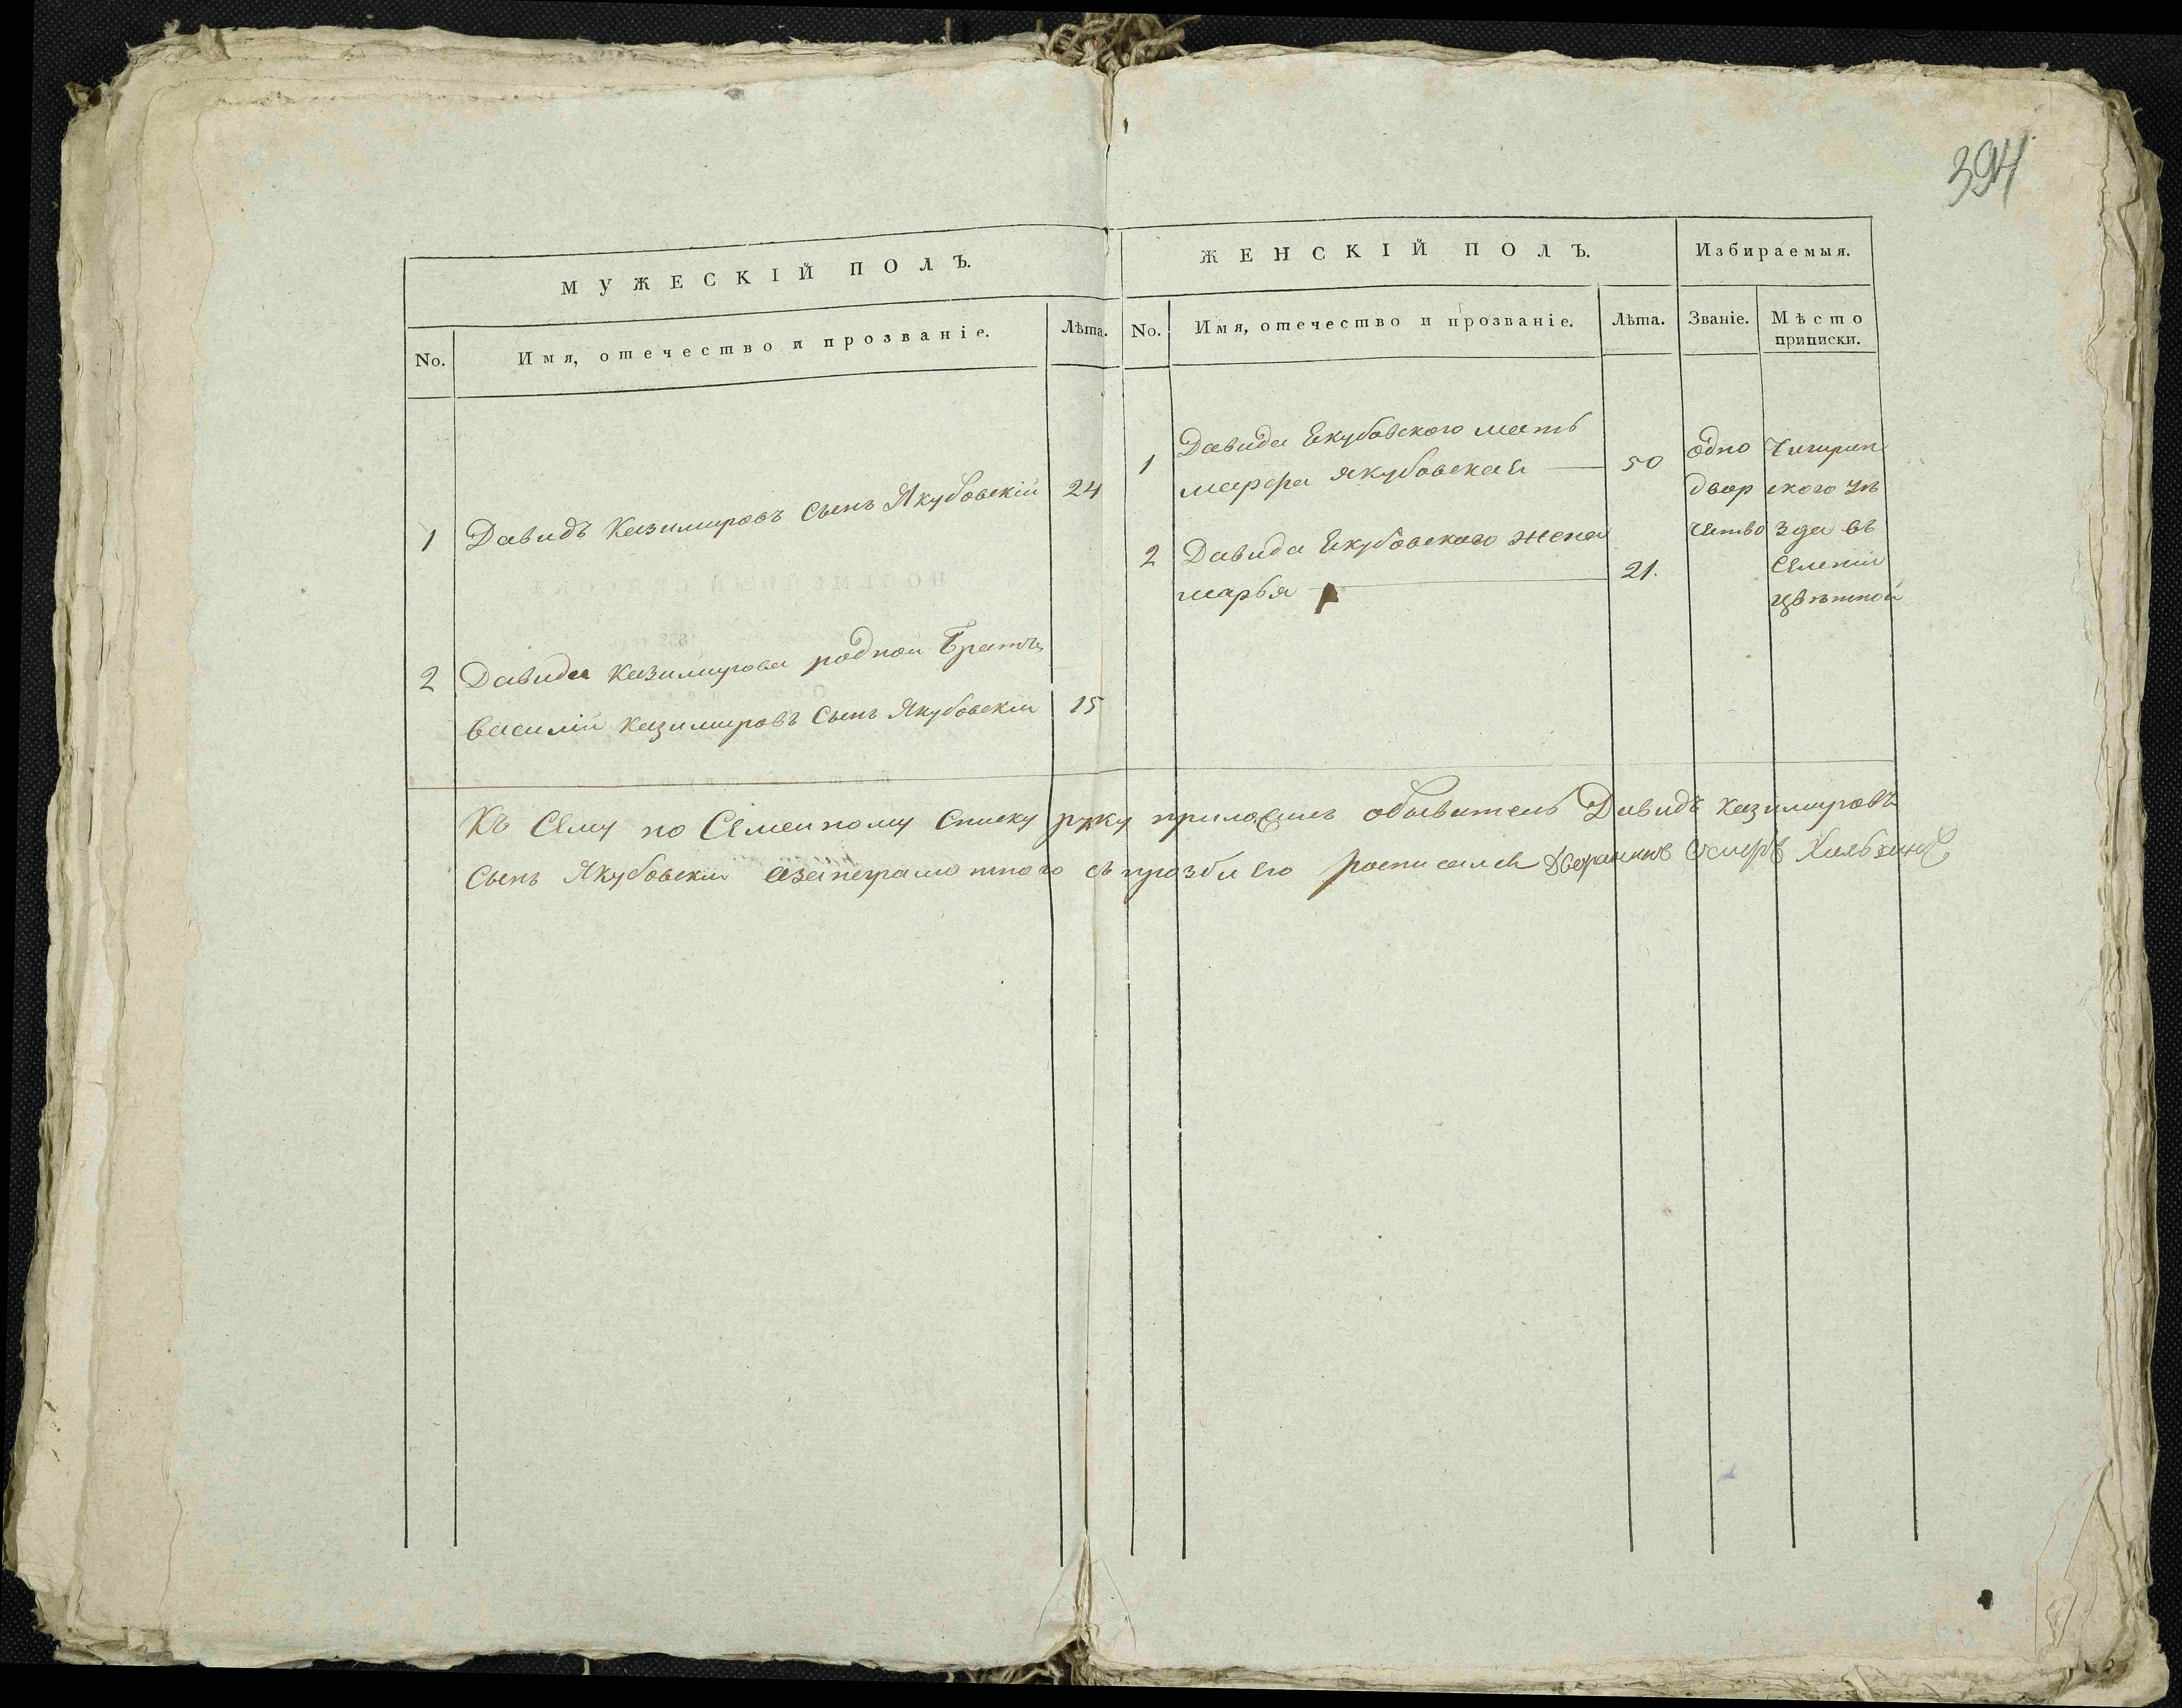 394
МУЖЕСКІЙ ПОЛЪ.
No. Имя, отечество и прозваніе. Лѣта.
1 Давидъ Казимировъ Сынъ Якубовскій 24
2 Давида Казимирова родной Братъ
василій Казимировъ Сынъ Якубовскій 15
ЖЕНСКІЙ ПОЛЪ.
No. Имя, отечество и прозваніе. Лѣта.
1 Давида Екубовского мать
марфа якубовская 50
2 Давида Екубовского жена
марья 21.
Избираемыя.
Званіе.
одно
двор
чество
Мѣсто
приписки.
Чигирин
ского уѣ
зда въ
Селеніи
цвѣтной
Къ Сему по Семейному Списку руку приложилъ обыватель Давидъ казимировъ
Сынъ Якубовскій азанеграмотного съ прозби его росписался